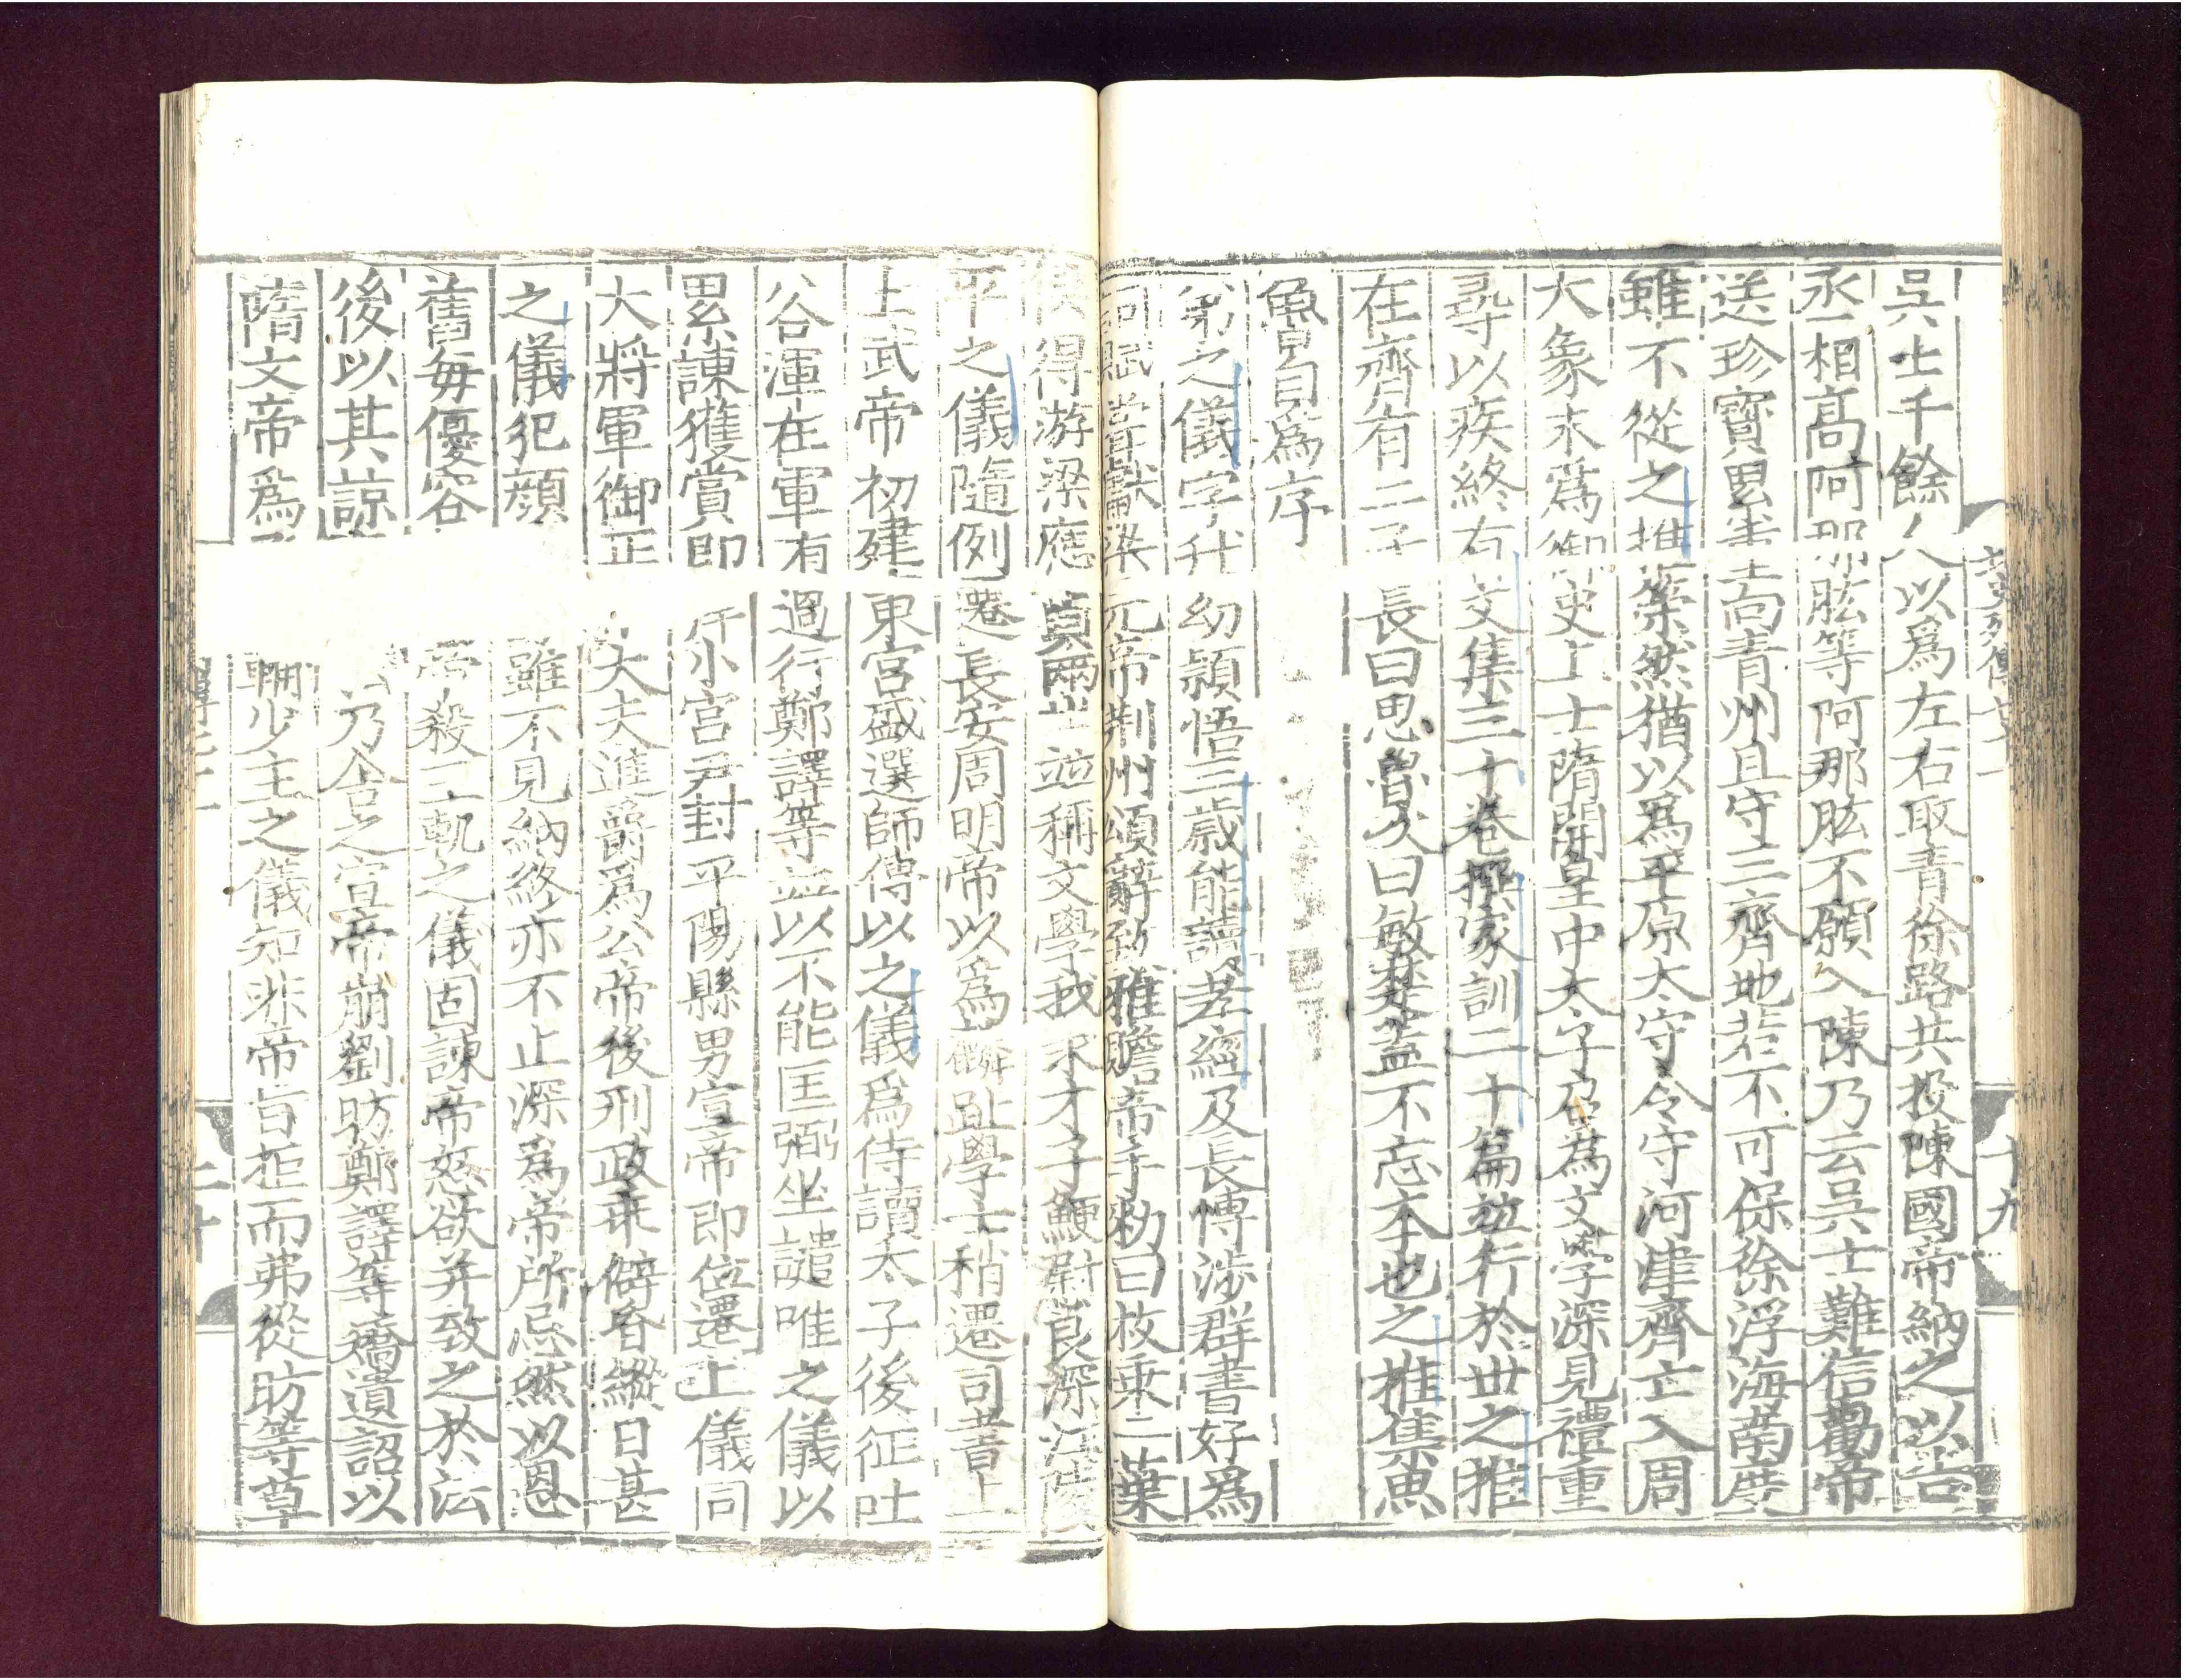 吳士千餘人以爲左右取青徐路共投陳國帝納之以告
丞相高阿那肱等阿那肱不願入陳乃云吳士難信勸帝
送珍寶累重向青州且守三齊地若不可保徐浮海南度
雖不從之推策然猶以爲平原太守令守河津齊亡入周
大象末爲御史上士隋開皇中太子召爲文學深見禮重
尋以疾終有文集三十卷撰家訓二十篇並行於世之推
在齊有二子長曰思魯次曰敏楚蓋不忘本也之推集思
魯自爲序
弟之儀字升幼頴悟三歲能讀孝經及長博涉群書好爲
詞賦嘗獻梁元帝荆州頌辭致雅贍帝手勑曰枚乘二葉
俱得游梁應貞兩世並稱文學我求才子鯁慰良深江陵
平之儀隨例遷長安周明帝以爲麟趾學士稍遷司書上士
上武帝初建東宮盛選師傅以之儀爲侍讀太子後征吐
谷渾在軍有過行鄭譯等並以不能匡弼坐譴唯之儀以
累諫獲賞即行小宮尹封平陽縣男宣帝即位遷上儀同
大將軍御正大夫進爵爲公帝後刑政乖僻昏縱日甚
之儀犯顔雖不見納終亦不止深爲帝所忌然以恩
舊每優容帝殺王軌之儀固諫帝怒欲并致之於法
後以其諒乃舍之宣帝崩劉昉鄭譯等矯遺詔以
隋文帝爲輔少主之儀知非帝旨拒而弗從昉等草
十九
二十